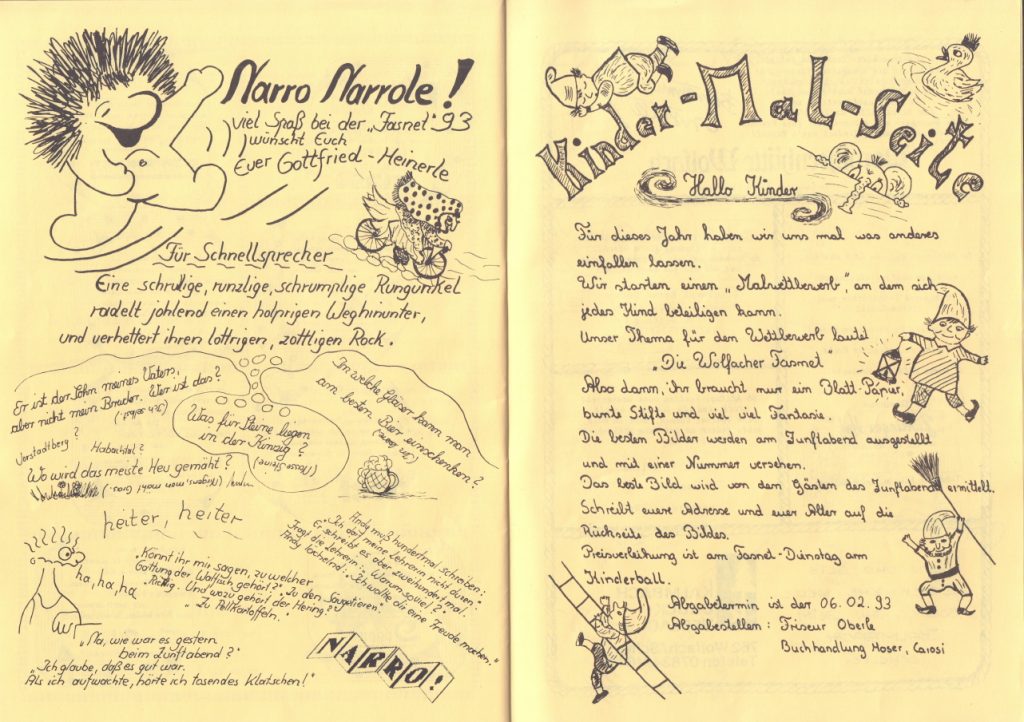 Narro Narrole!
Viel Spaß bei der „Fasnet" 93
wünscht Euch
Euer Gottfried-Heinerle
Für Schnellsprecher
Eine schrullige, runzlige, schrumplige Rungunkel
radelt johlend einen holprigen Weghinunter,
und verheddert ihren lottrigen, zottligen Rock.
Er ist der Sohn meines Vaters,
aber nicht mein Bruder. Wer ist das?
(Ich selbst.)
Was für Steine liegen
in der Kinzig?
(Nasse Steine)
In welche Gläser kann man
am besten Bier einschenken?
(In leere)
?
Vorstadtberg?
Habachtal?
Wo wird das meiste Heu gemäht?
(Nirgens, man mäht Gras.)
heiter, heiter
ha, ha, ha
„Könnt ihr mir sagen, zu welcher
Gattung der Walfisch gehört?" „Zu den Säugetieren."
„Richtig. Und wozu gehört der Hering?"
„Zu Pellkartoffeln."
Andy muß hundertmal schreiben:
„Ich darf meine Lehrerin nicht duzen."
Er schreibt es aber zweihundert mal.
Fragt die Lehrerin: „Warum soviel?"
Andy lächelnd: „Ich wollte dir eine Freude machen."
„Na, wie war es gestern
beim Zunftabend?"
„Ich glaube, daß es gut war.
Als ich aufwachte, hörte ich tosendes Klatschen!"
NARRO!
Kinder-Mal-Seite
Hallo Kinder
Für dieses Jahr haben wir uns mal was anderes
einfallen lassen.
Wir starten einen „Malwettbewerb", an dem sich
jedes Kind beteiligen kann.
Unser Thema für den Wettbewerb lautet
„Die Wolfacher Fasnet"
Also dann, ihr braucht nur ein Blatt Papier,
bunte Stifte und viel viel Fantasie.
Die besten Bilder werden am Zunftabend ausgestellt
und mit einer Nummer versehen.
Das beste Bild wird von den Gästen des Zunftabends ermittelt.
Schreibt eure Adresse und euer Alter auf die
Rückseite des Bildes.
Preisverleihung ist am Fasnet-Dienstag am
Kinderball.
Abgabetermin ist der 06.02.93
Abgabestellen: Friseur Oberle
Buchhandlung Moser, Carosi